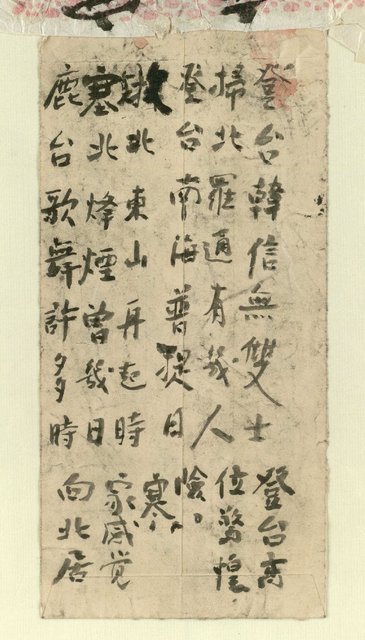 登台韓信無雙士 登台高
掃北羅通有幾人 位驚惶
登台南海普提日 險。
北東山再起時 寒
塞北烽煙曾幾日 家感覚
鹿台歌舞許多時 向北居